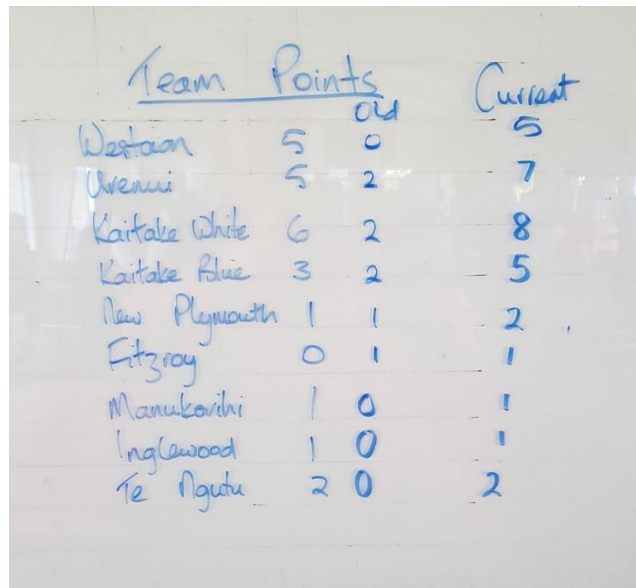 Team Points
Old Current
Westown 5 0 5
Urenui 5 2 7
Kaitake White 6 2 8
Kaitake Blue 3 2 5
New Plymouth 1 1 2
Fitzroy 0 1 1
Manukorihi 1 0 1
Inglewood 1 0 1
Te Ngutu 2 0 2